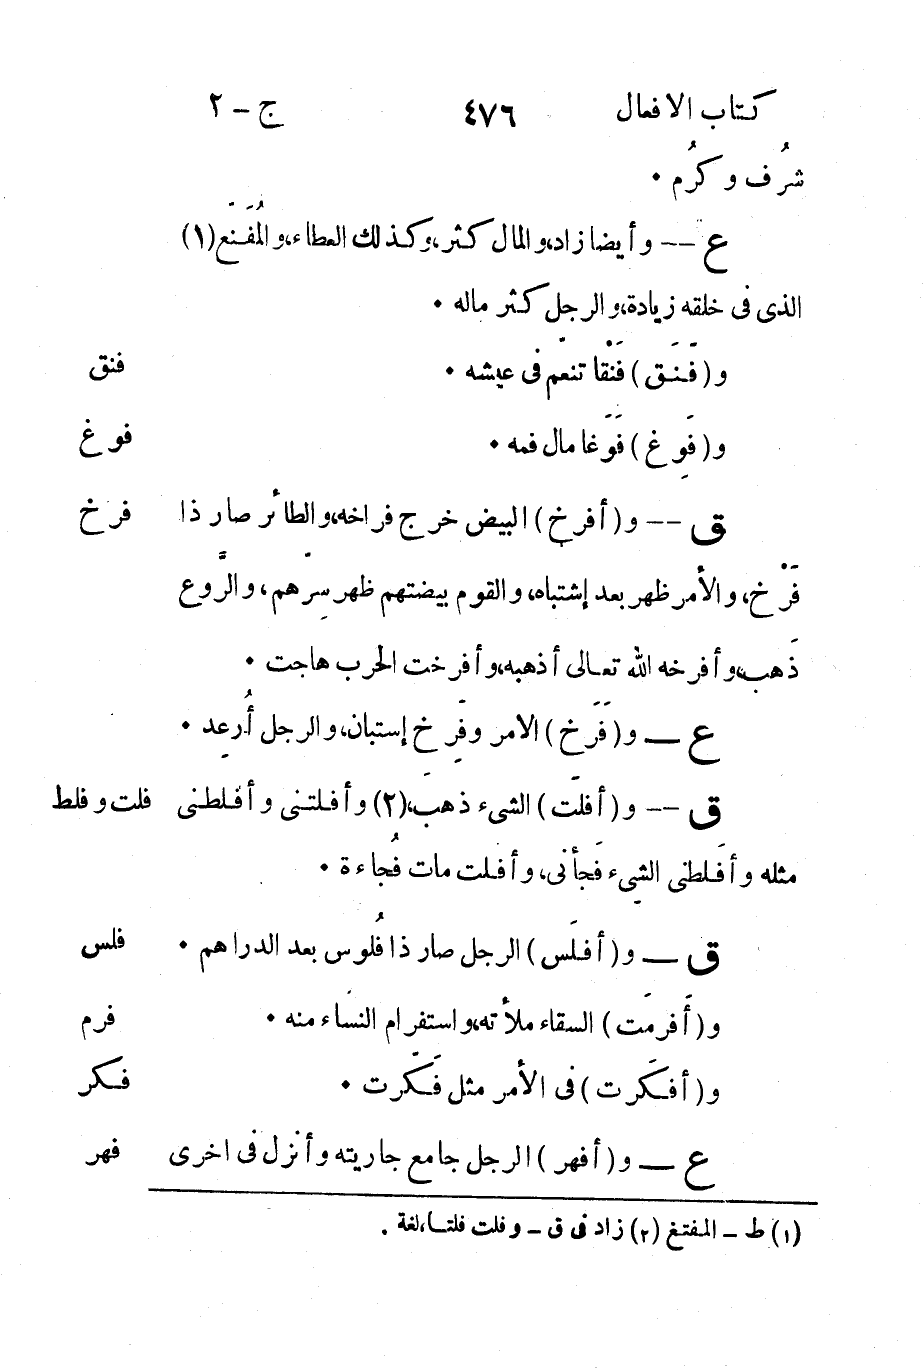 كتاب الافعال ٤٧٦ ج – ٢
شرُف وكرُم •
ع –– وأيضا زاد، والمال كثر، وكذلك العطاء، والمُفَنَع (١)
الذى فى خلقه زيادة، والرجل كثر ماله •
و (فَنَّق) فَنْقًا تنعّم فى عيشه • فنق
و (فَوِغ) فَوَغا مال فمه • فوغ
ق –– و (أفرخ) البيض خرج فراخه، والطائر صار ذا فرخ
فَرْخ، والأمر ظهر بعد إشتباه، والقوم بيضتهم ظهر سِرّهم، والرَّوع
ذَهب، وأفرخه الله تعالى أذهبه، وأفرخت الحرب هاجت •
ع — و (فَرَخ) الامر وفَرِخ إستبان، والرجل أُرعِد •
ق –– و (أفلَت) الشىء ذهب، (٢) وأفلتنى وأفلطنى فلت وفلط
مثله وأفلَطنى الشىء فَجِأنى، وأفلت مات فُجاءة •
ق — و (أفلَس) الرجل صار ذا فُلوس بعد الدراهم • فلس
و (أَفرمَت) السقاء ملأته، واستفرام النساء منه • فرم
و (أفكَرت) فى الأمر مثل فَكّرت • فكر
ع — و (أفهر) الرجل جامع جاريته وأنزل فى اخرى فهر
(١) ط – المفتغ (٢) زاد فى ق – وفلت فلتا، لغة .